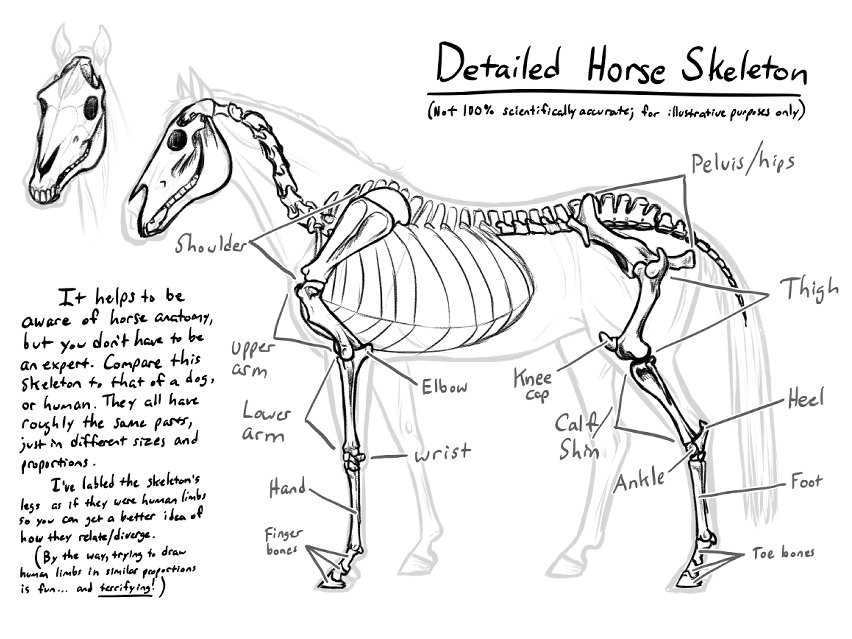 Detailed Horse Skeleton
(Not 100% scientifically accurate; for illustrative purposes only)
Pelvis/hips
Shoulder
Thigh
It helps to be
aware of horse anatomy,
but you don't have to be
an expert. Compare this
skeleton to that of a dog,
or human. They all have
roughly the same parts,
just in different sizes and
proportions.
I've labled the skeleton's
legs as if they were human limbs
so you can get a better idea of
how they relate/diverge.
(By the way, trying to draw
human limbs in similar proportions
is fun... and terrifying!)
Upper
arm
Elbow
Knee
cap
Lower
arm
Calf/
Shin
Heel
wrist
Ankle
Hand
Foot
Finger
bones
Toe bones